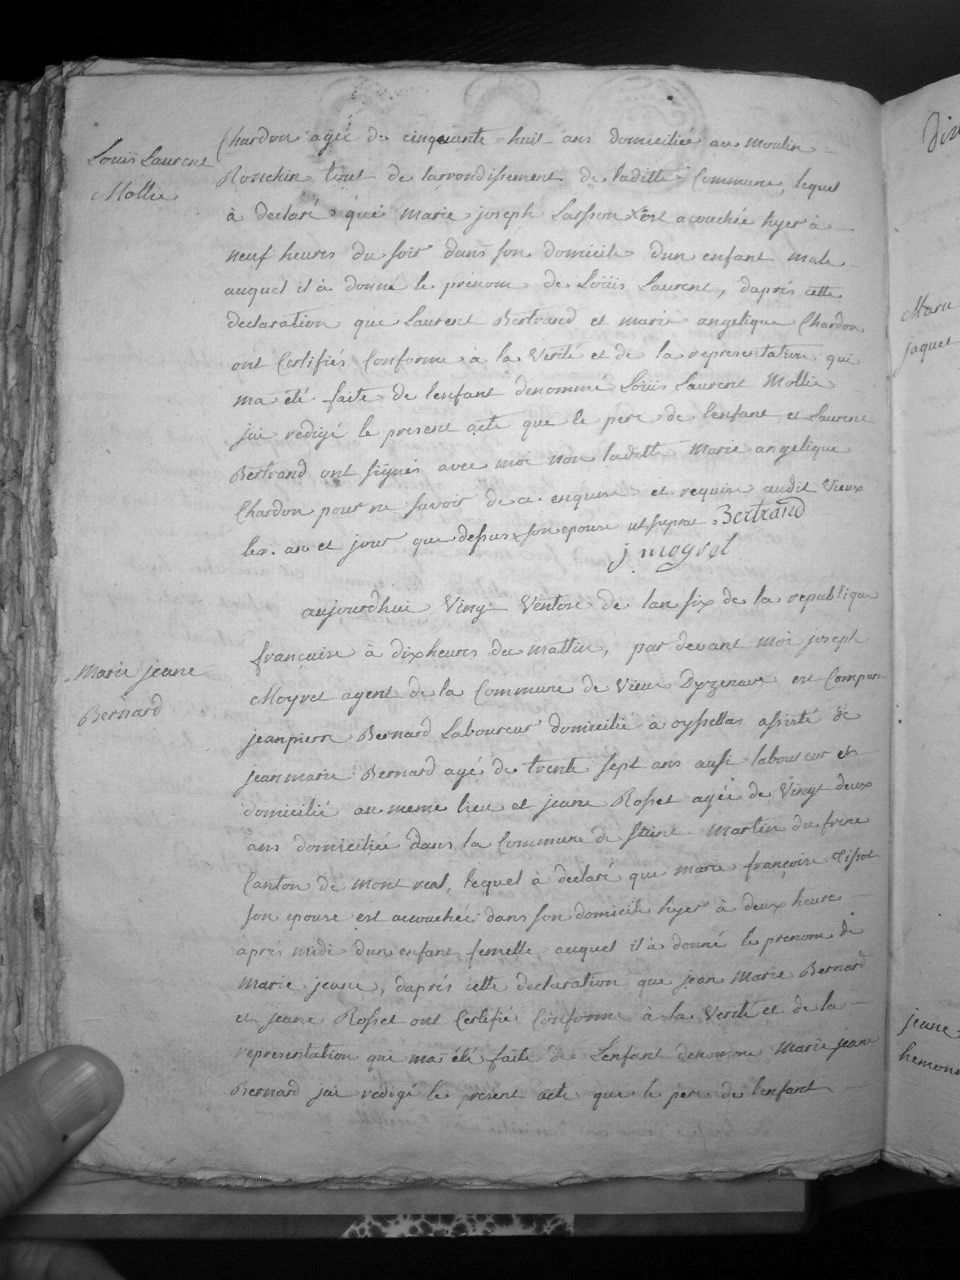 Louis Laurent
Mollie
Chardon agée de cinquante huit ans domiciliée au Moulin
Ronchin tout de larrondissement de laditte Commune, lequel
à declaré que marie joseph Sasson est acouchée hyer à
neuf heures du soir dans son domicile dun enfant male
auquel il à donné le prénom de Loüis Laurent, daprés cette
declaration que Laurent Bertrand et marie angelique Chardon
ont Certifiés Conforme à la Verité et de la representation qui
ma été faite de lenfant denommé Loüis Laurent Mollie
jai redigé le present acte que le pere de lenfant et Laurent
Bertrand ont signés avec moi non laditte Marie angelique
Chardon pour ne savoir de ce enquise et requise audit Vieux
les an et jour que dessus son epouse ut supra Bertrand
j moyret
Marie jeane
Bernard
aujourdhui Vingt Ventose de lan six de la republique
françaises à dix heures du mattin, par devant moi joseph
Moyret agent de la Commune de Vieux Dyzenave est Comparu
jeanpierre Bernard Laboureur domicilié à oyssellas assisté de
jean marie Bernard agé de trente sept ans aussi laboureur et
domicilié au meme lieu et jeane Rosset agée de Vingt deux
ans domiciliée dans la Commune de St Martin du frene
Canton de mont real, lequel à declaré que marie françoise Tissot
son epouse est accouchée dans son domicile hyer à deux heure
aprés midi dun enfant femelle auquel il à donné le prenom de
Marie jeane, daprés cette declaration que jean Marie Bernard
et jeane Rosset ont Certifié Conforme à la Verité et de la
representation que ma été faite de Lenfant denommé Marie jeane
Bernard jai redigé le present acte que le pere de lenfant
Marie
jaquet
jeane